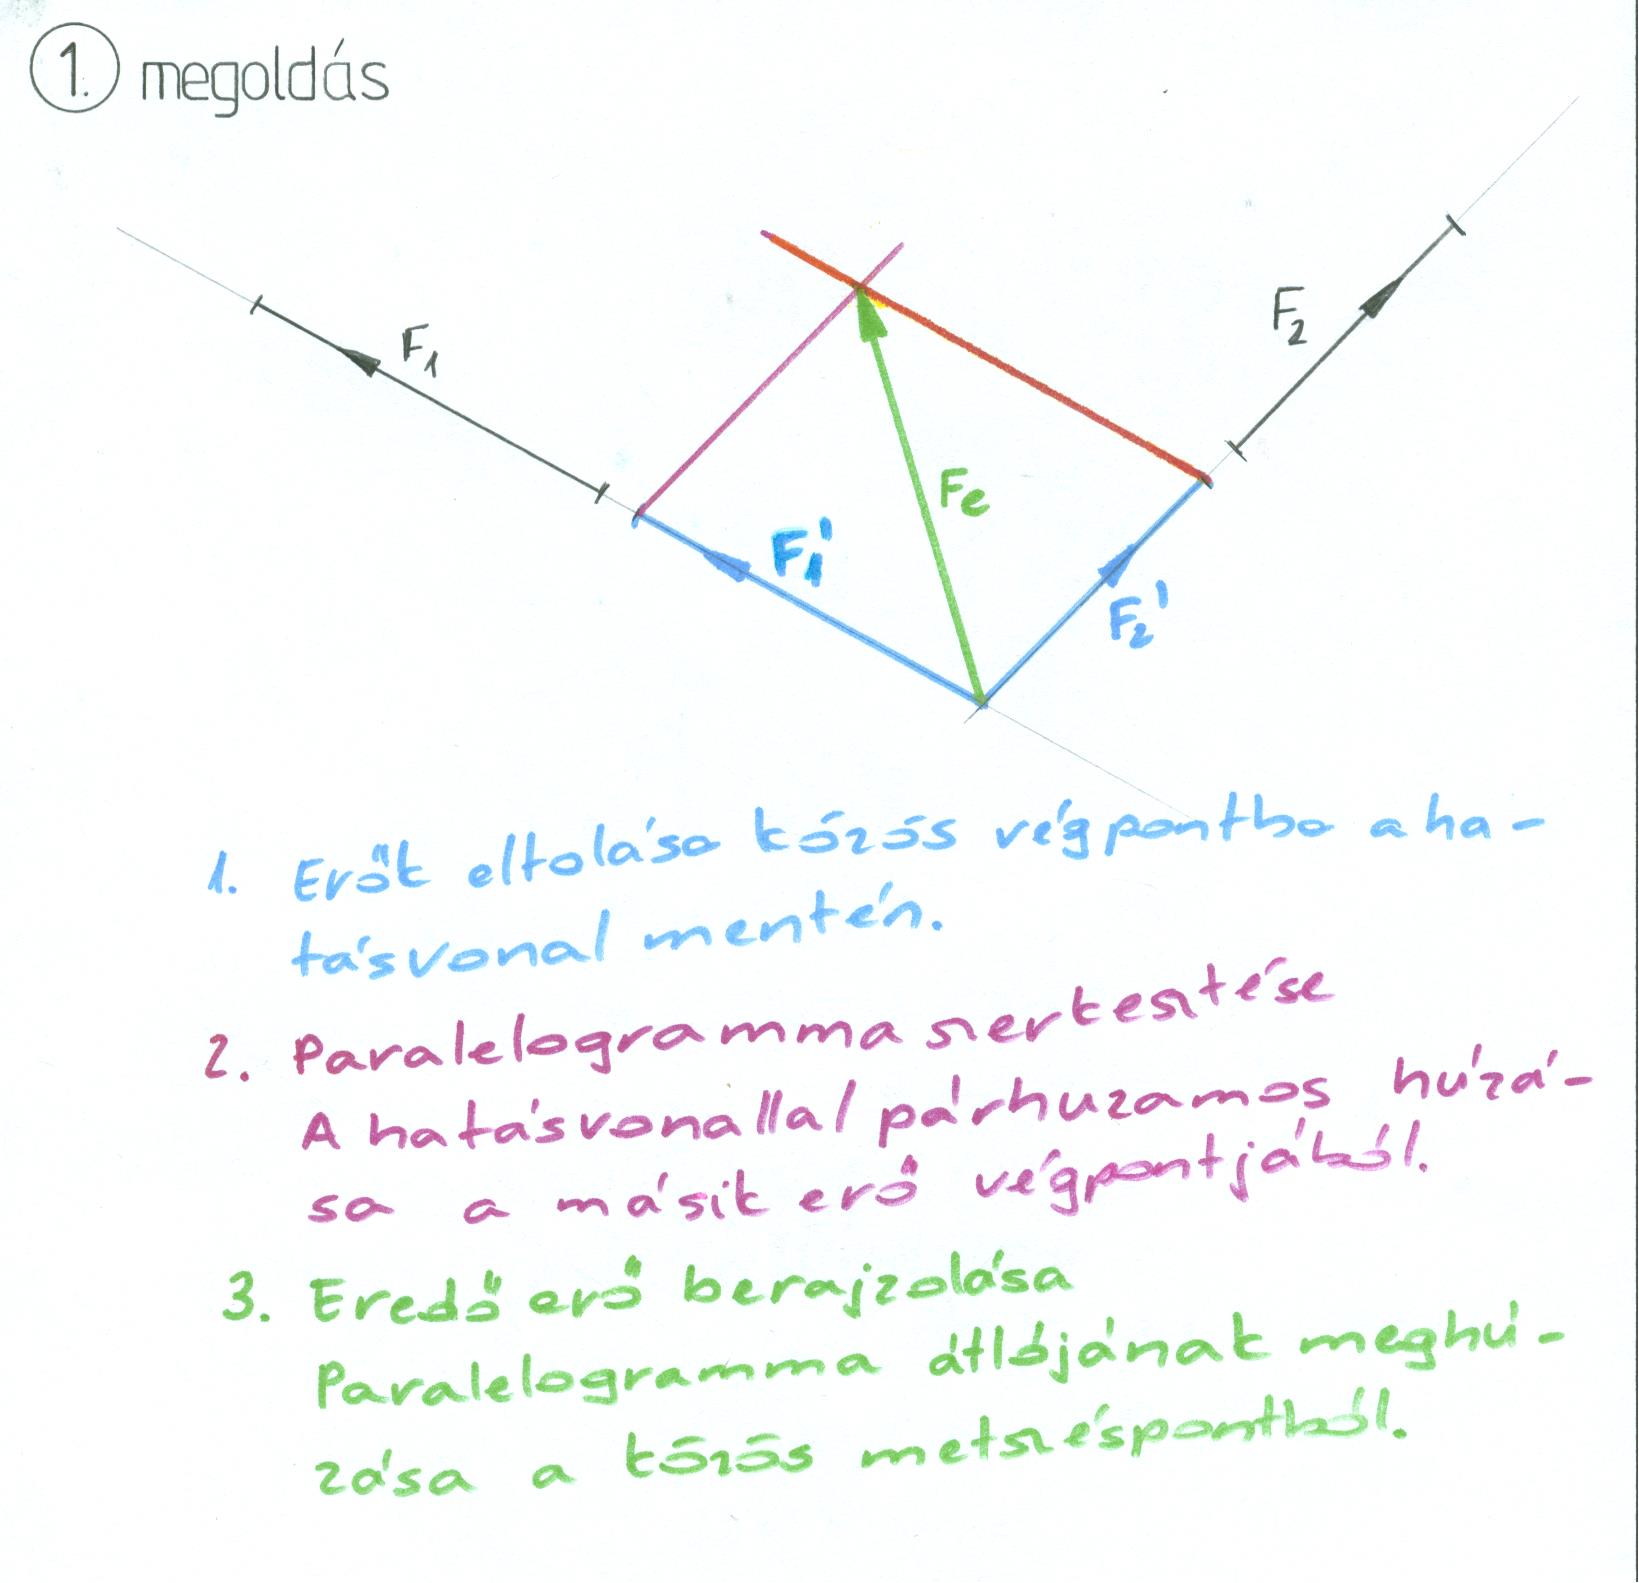 1. megoldás
F1
F2
Fe
F1'
F2'
1. Erők eltolása közös végpontba a ha-
tásvonal mentén.
2. Paralelogramma szerkesztése
A hatásvonallal párhuzamos húzá-
sa a másik erő végpontjából.
3. Eredő erő berajzolása
Paralelogramma átlójának meghú-
zása a közös metszéspontból.